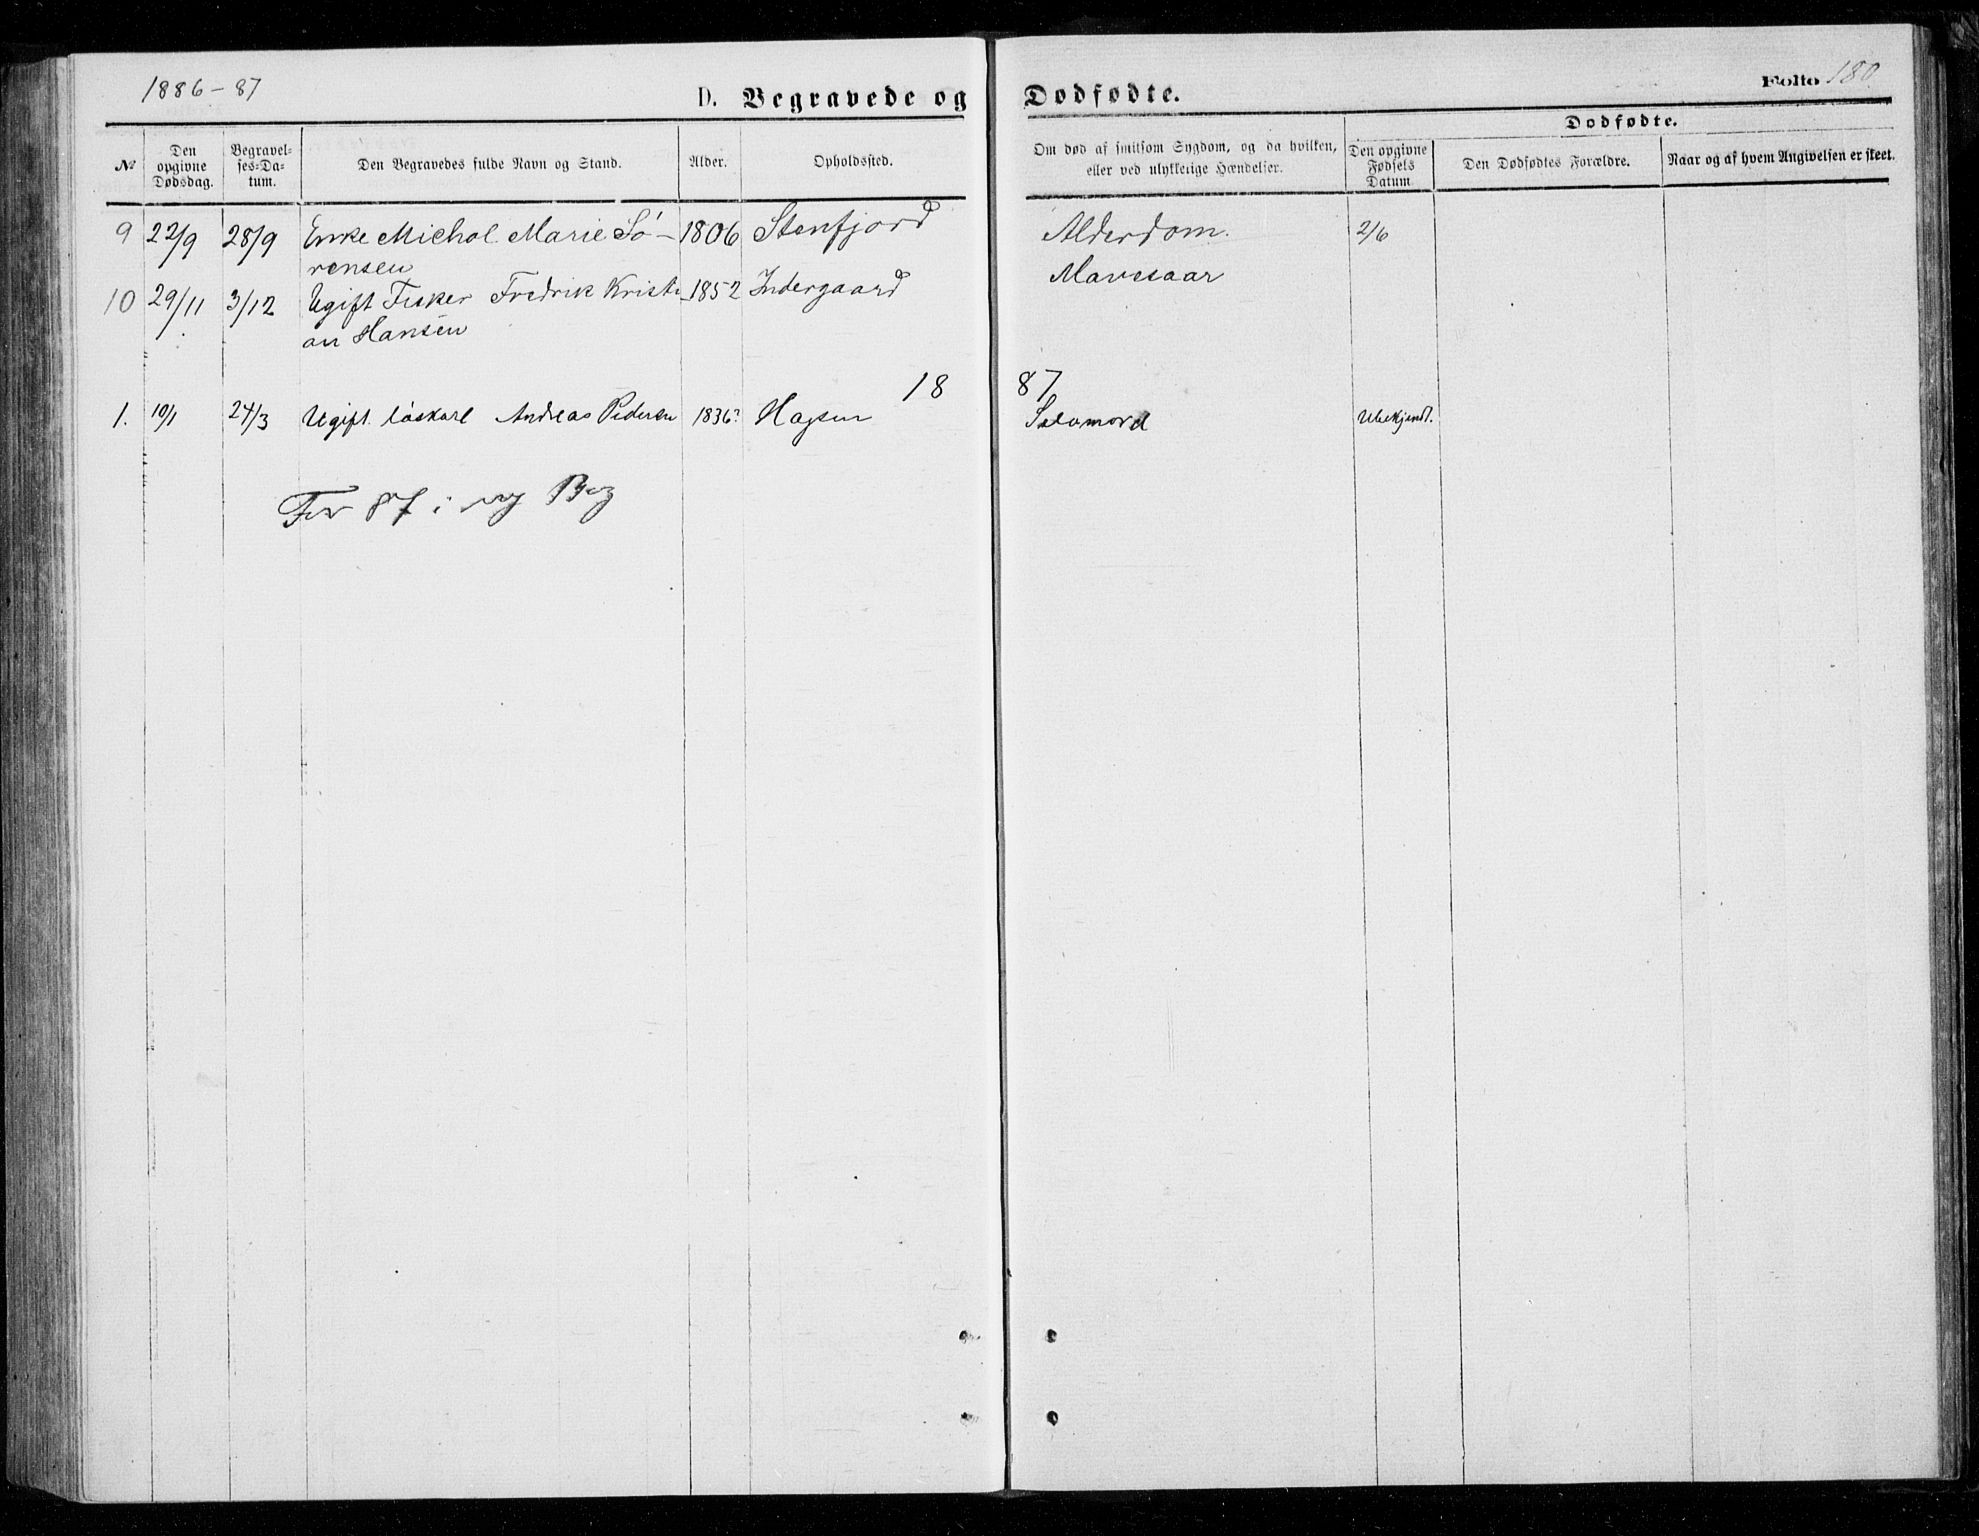 1886-87
D. Begravede og Dødfødte.
Folio 180
№
Den opgivne Dødsdag.
Begravelses-Datum.
Den Begravedes fulde Navn og Stand.
Alder.
Opholdssted.
Om død af smitsom Sygdom, og da hvilken,
eller ved ulykkelige Hændelser.
Dødfødte.
Den opgivne Fødsels Datum
Den Dødfødtes Forældre.
Naar og af hvem Angivelsen er skeet.
9 22/9 28/9 Enke Michol Marie Sö- 1806 Stenfjord Alderdom. 2/6
rensen
10 29/11 3/12 Ugift Fisker Fredrik Kristi- 1852 Indergaard Mavesaar
an Hansen
18 87
1. 10/1 24/3 Ugift löskarl Andreas Pedersen 1836? Hagsen Selvmord Ubekjendt.
For 87 i ny Bog